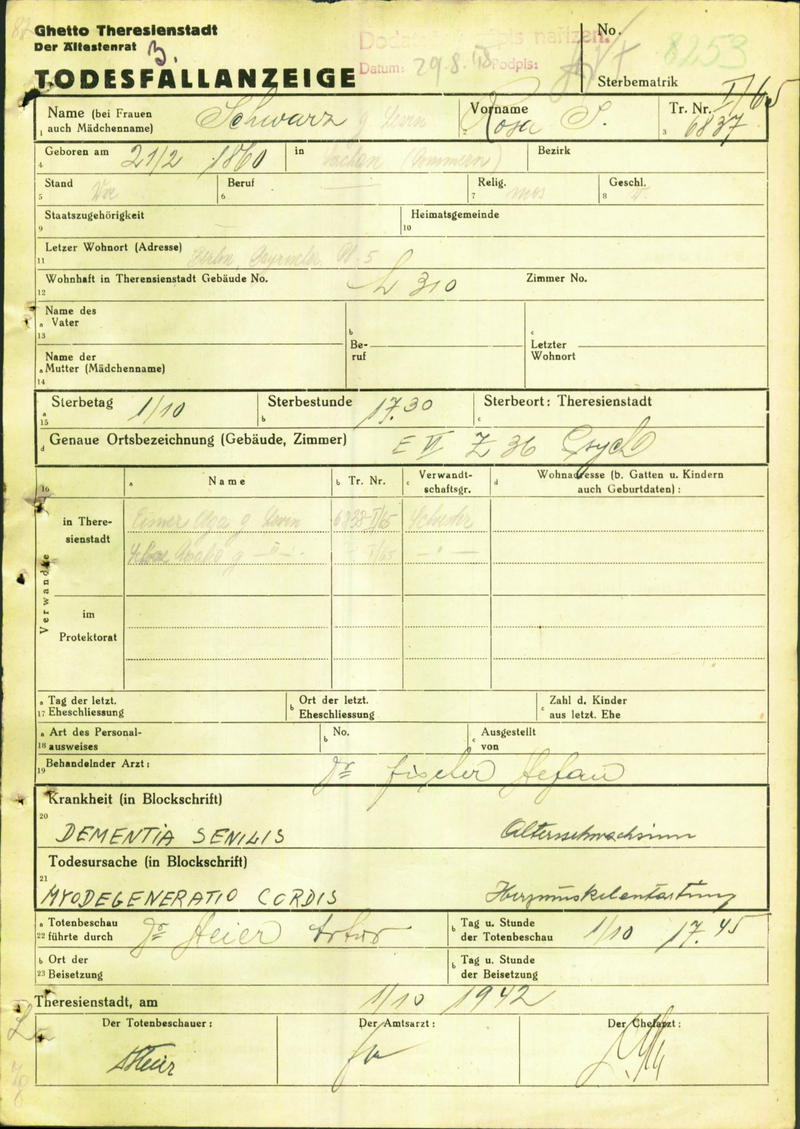 Ghetto Theresienstadt
Der Ältestenrat
TODESFALLANZEIGE
Datum: 29.8. Podpis:
No.
8253
Sterbematrik
Name (bei Frauen auch Mädchenname) Schwarz g Levin
Vorname Rosa S.
Tr. Nr. I/65 6837
1 2 3
Geboren am 21/2 1860 in Bezirk
4
Stand Beruf Relig. mos Geschl.
5 6 7 8
Staatszugehörigkeit Heimatsgemeinde
9 10
Letzer Wohnort (Adresse) Berlin
11
Wohnhaft in Therensienstadt Gebäude No. L 310 Zimmer No.
12
Name des
a Vater
13
Name der
a Mutter (Mädchenname)
14
b
Be-
ruf
c
Letzter
Wohnort
a Sterbetag 1/10 b Sterbestunde 17.30 c Sterbeort: Theresienstadt
15
d Genaue Ortsbezeichnung (Gebäude, Zimmer) E VI Z 36 Psych
16 a Name b Tr. Nr. c Verwandt-
schaftsgr. d Wohnadresse (b. Gatten u. Kindern
auch Geburtdaten) :
Verwandte
in There-
sienstadt
g Levin 6838-I/65
I/65
im
Protektorat
a Tag der letzt.
17 Eheschliessung
b Ort der letzt.
Eheschliessung
c Zahl d. Kinder
aus letzt. Ehe
a Art des Personal-
18 ausweises
b No.
c Ausgestellt
von
19 Behandelnder Arzt: Dr Fischer Stefan
Krankheit (in Blockschrift)
20
DEMENTIA SENILIS Altersschwachsinn
Todesursache (in Blockschrift)
21
MYODEGENERATIO CORDIS Herzmuskelentartung
a Totenbeschau
22 führte durch Dr Steier Artur
b Tag u. Stunde
der Totenbeschau 1/10 17.45
b Ort der
23 Beisetzung
b Tag u. Stunde
der Beisetzung
Theresienstadt, am 1/10 1942
Der Totenbeschauer: Der Amtsarzt: Der Chefarzt: